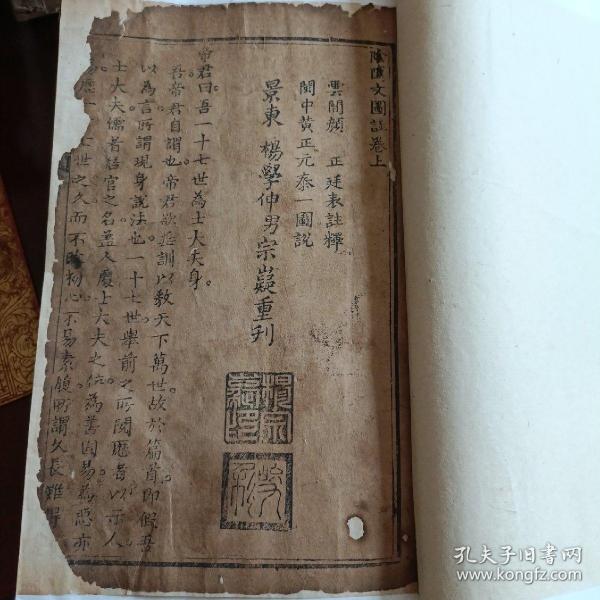 陰隲文圖註卷上
雲間顏　正廷表註釋
閩中黃正元泰一圖說
景東　楊學伸男宗嶷重刋
帝君曰吾一十七世為士大夫身。
吾帝君自謂也。帝君欲垂訓以敎天下萬世故於篇首即假吾
以為言所謂現身說法也一十七世舉前之所閱歷者以示人
士大夫儒者居官之名蓋人處士大夫之位為善固易為惡亦
易應一十七世之久而不昧初心不易素領所謂久長難得
孔夫子旧书网
www.kongfz.com